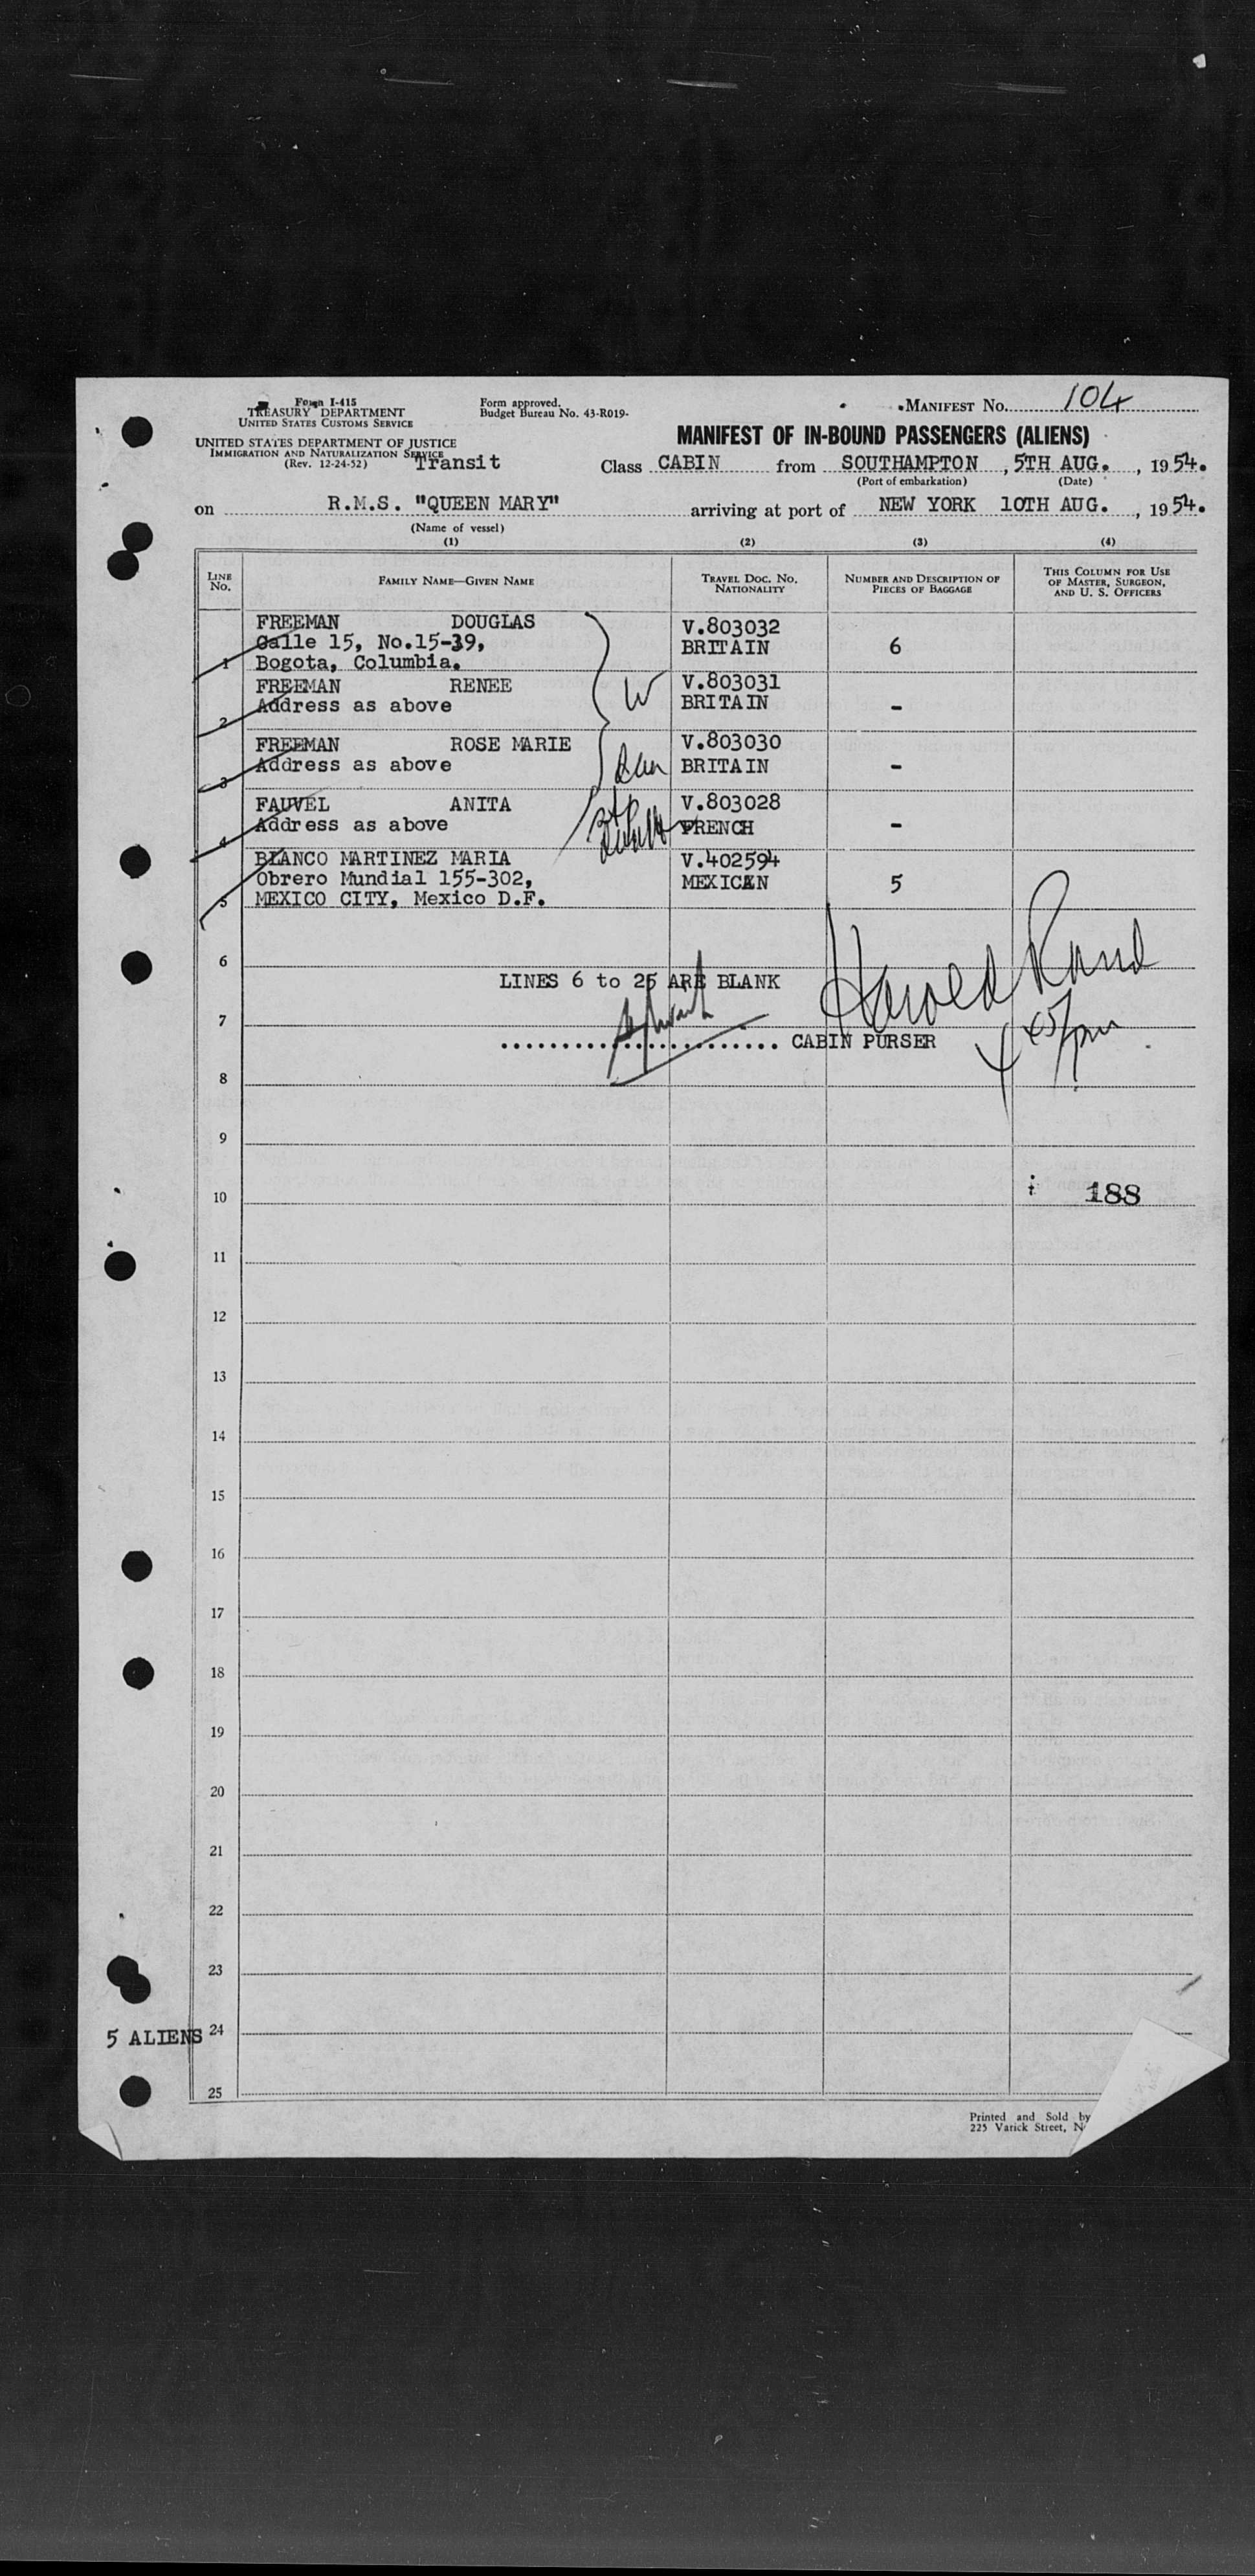 Form I-415
TREASURY DEPARTMENT
UNITED STATES CUSTOMS SERVICE
Form approved.
Budget Bureau No. 43-R019-
MANIFEST No. 104
UNITED STATES DEPARTMENT OF JUSTICE
IMMIGRATION AND NATURALIZATION SERVICE
(Rev. 12-24-52)
MANIFEST OF IN-BOUND PASSENGERS (ALIENS)
Transit Class CABIN from SOUTHAMPTON, 5TH AUG., 1954.
(Port of embarkation) (Date)
on R.M.S. "QUEEN MARY" arriving at port of NEW YORK 10TH AUG., 1954.
(Name of vessel)
(1) (2) (3) (4)
LINE No. FAMILY NAME—GIVEN NAME TRAVEL DOC. NO. NATIONALITY NUMBER AND DESCRIPTION OF PIECES OF BAGGAGE THIS COLUMN FOR USE OF MASTER, SURGEON, AND U. S. OFFICERS
FREEMAN DOUGLAS V.803032
Calle 15, No.15-39, BRITAIN 6
1 Bogota, Columbia.
FREEMAN RENEE V.803031
2 Address as above BRITAIN -
W
FREEMAN ROSE MARIE V.803030
3 Address as above BRITAIN -
FAUVEL ANITA V.803028
4 Address as above FRENCH -
BLANCO MARTINEZ MARIA V.402594
Obrero Mundial 155-302, MEXICAN 5
5 MEXICO CITY, Mexico D.F.
6
LINES 6 to 25 ARE BLANK
Harold Rand
7
CABIN PURSER
4 45 pm
8
9
10 188
11
12
13
14
15
16
17
18
19
20
21
22
23
5 ALIENS 24
25
Printed and Sold by
225 Varick Street, N